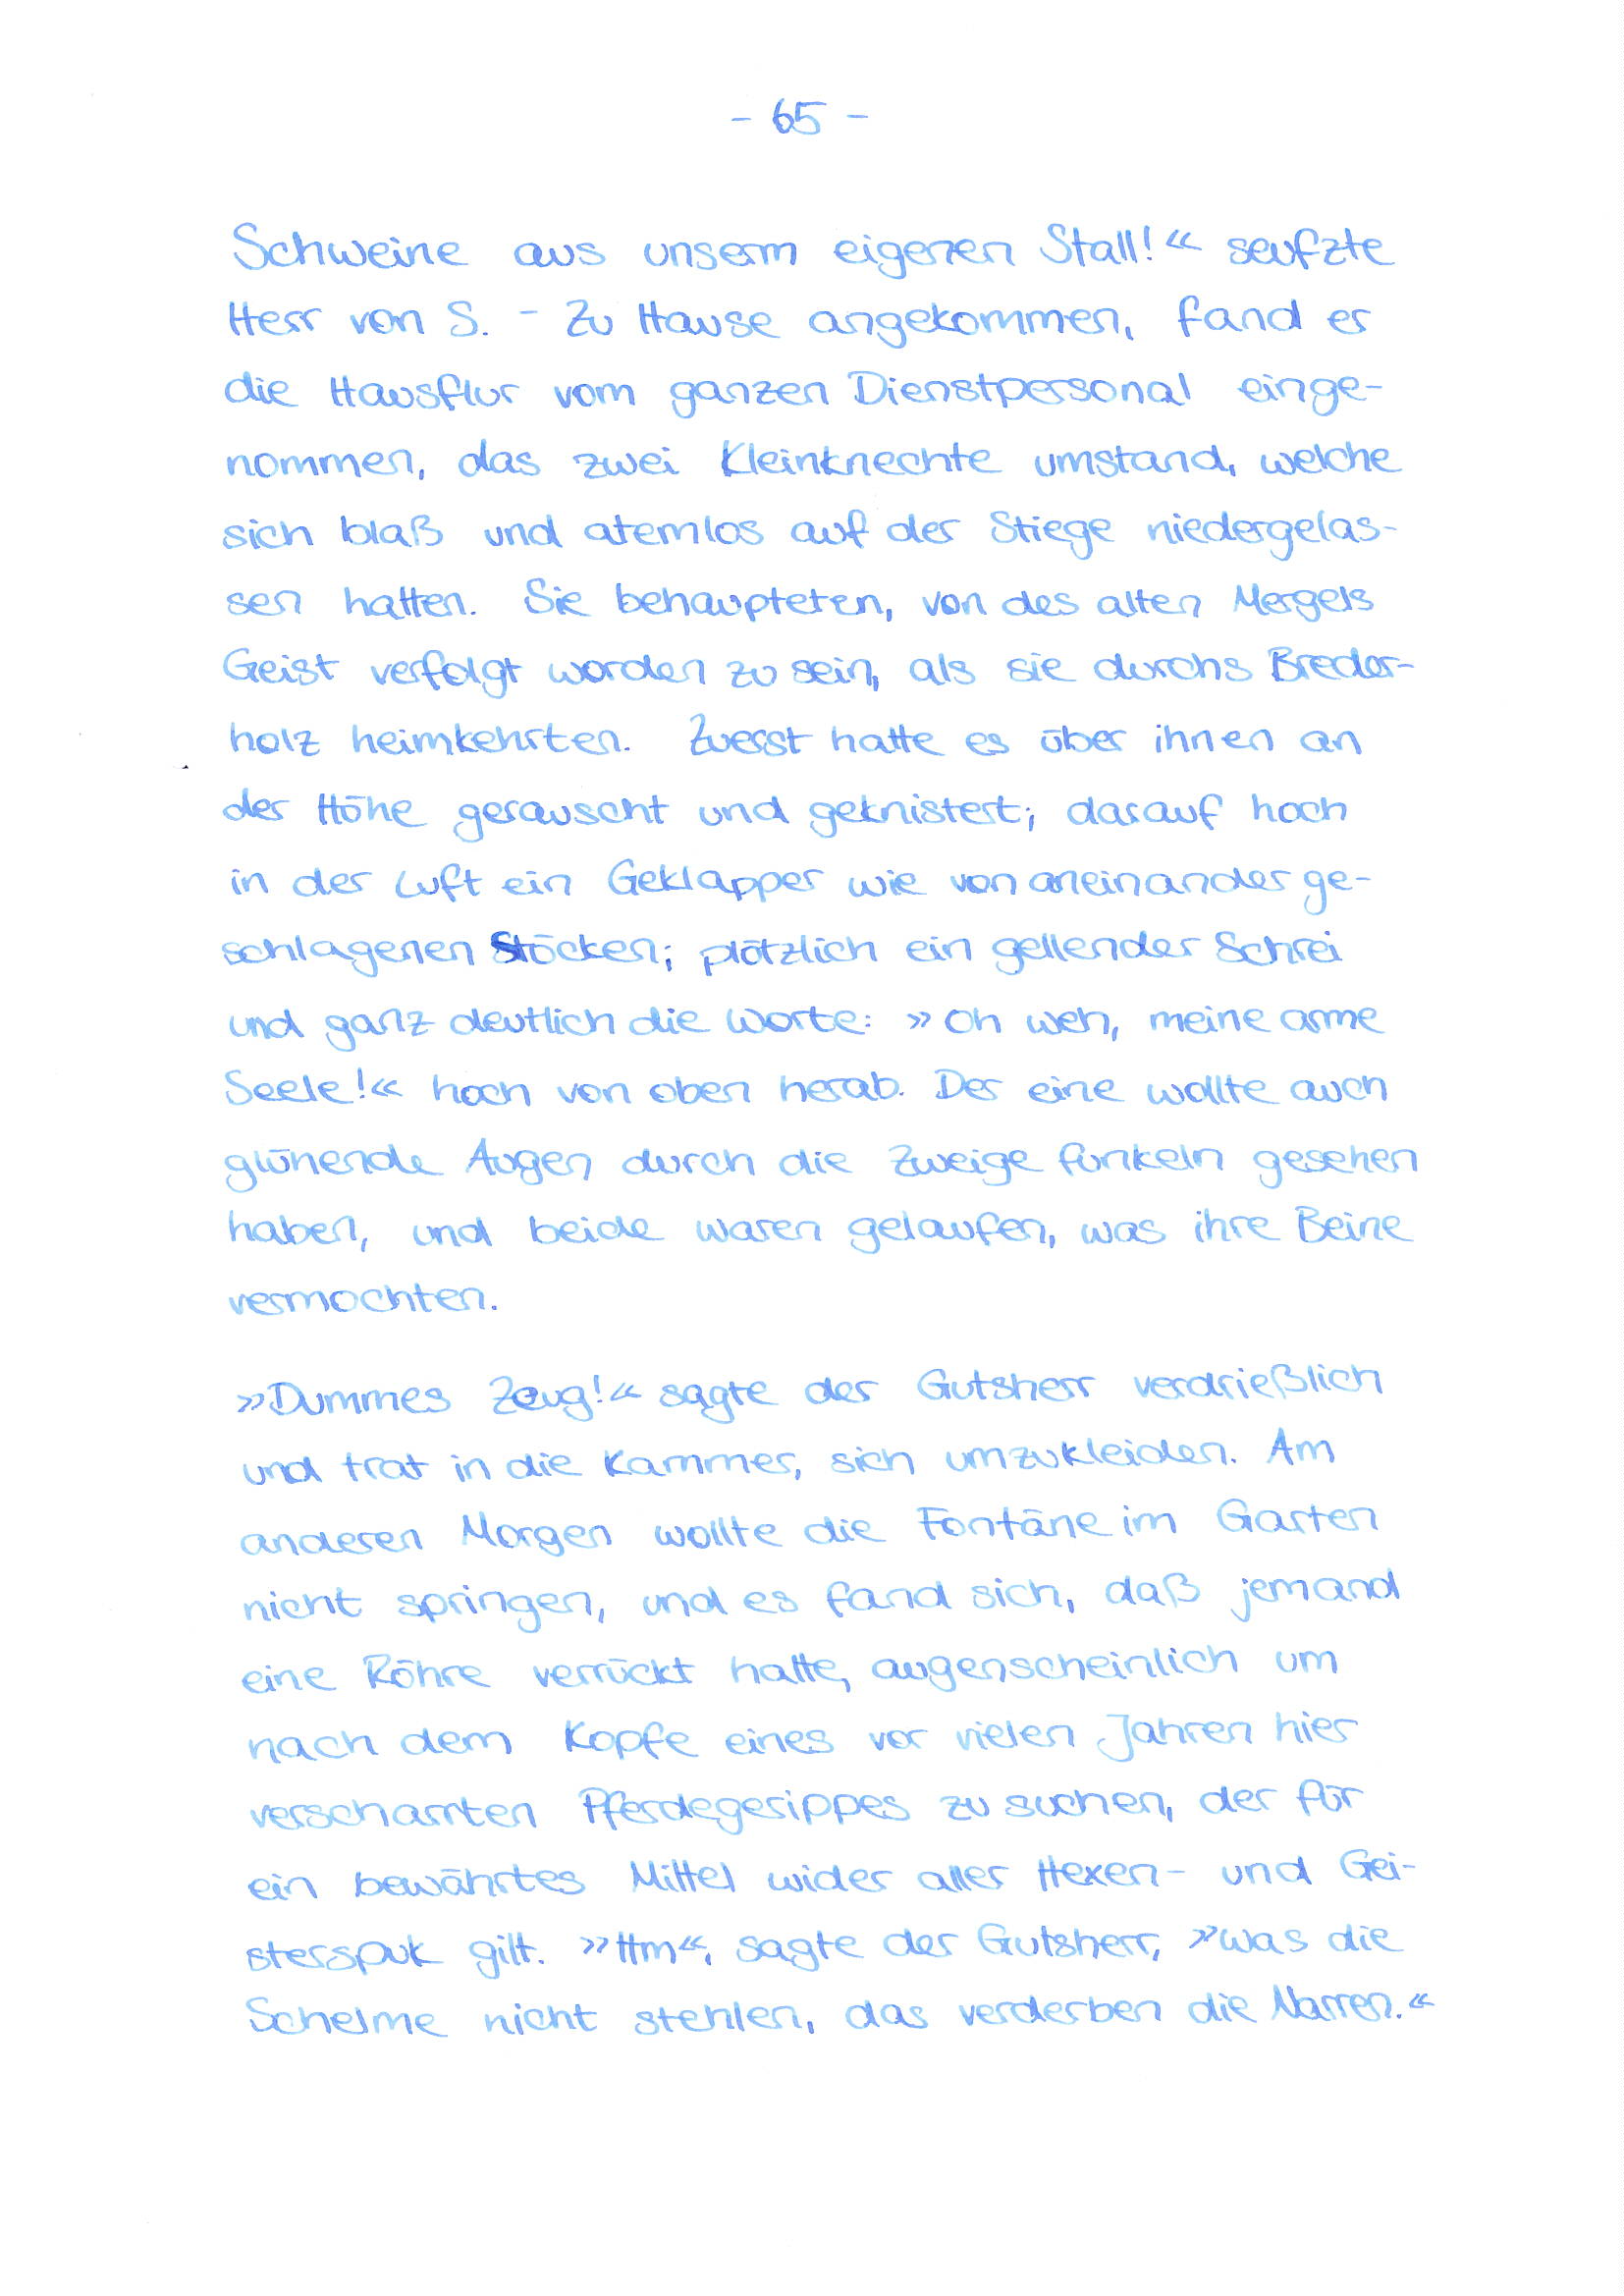 - 65 -
Schweine aus unserm eigenen Stall!« seufzte
Herr von S. - Zu Hause angekommen, fand er
die Hausflur vom ganzen Dienstpersonal einge-
nommen, das zwei Kleinknechte umstand, welche
sich blaß und atemlos auf der Stiege niedergelas-
sen hatten. Sie behaupteten, von des alten Mergels
Geist verfolgt worden zu sein, als sie durchs Breder-
holz heimkehrten. Zuerst hatte es über ihnen an
der Höhe gerauscht und geknistert; darauf hoch
in der Luft ein Geklapper wie von aneinander ge-
schlagenen Stöcken; plötzlich ein gellender Schrei
und ganz deutlich die Worte: »Oh weh, meine arme
Seele!« hoch von oben herab. Der eine wollte auch
glühende Augen durch die Zweige funkeln gesehen
haben, und beide waren gelaufen, was ihre Beine
vermochten.
»Dummes Zeug!« sagte der Gutsherr verdrießlich
und trat in die Kammer, sich umzukleiden. Am
anderen Morgen wollte die Fontäne im Garten
nicht springen, und es fand sich, daß jemand
eine Röhre verrückt hatte, augenscheinlich um
nach dem Kopfe eines vor vielen Jahren hier
verscharrten Pferdegerippes zu suchen, der für
ein bewährtes Mittel wider aller Hexen- und Gei-
sterspuk gilt. »Hm«, sagte der Gutsherr, »was die
Schelme nicht stehlen, das verderben die Narren.«